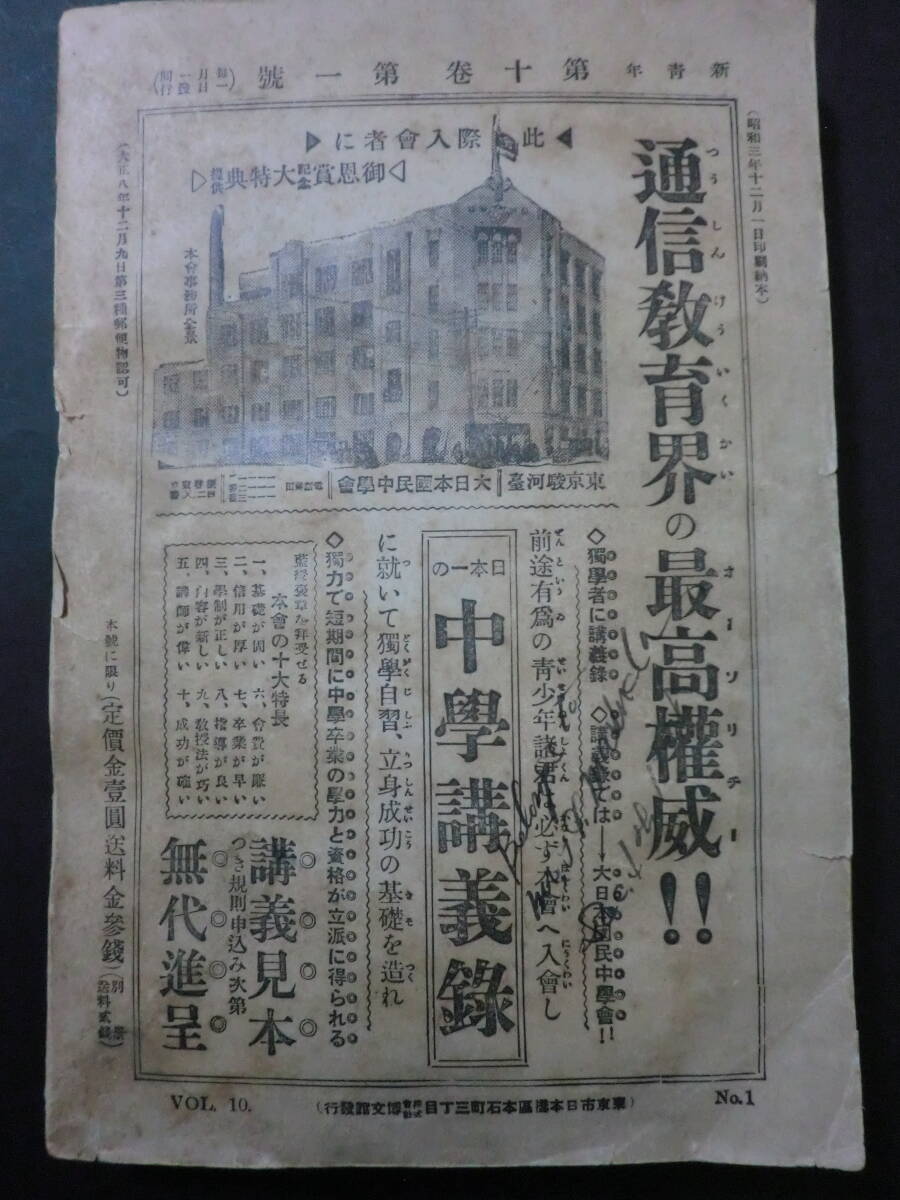 新青年 第十卷 第一號 (毎月一回一日發行)
(昭和三年十二月一日印刷納本)
(大正八年十二月九日第三種郵便物認可)
通信教育界の最高權威!!
つうしんけういくかい
オーソリチー
此際入會者に
御恩賞記念大特典提供
本會事務所全景
東京駿河臺 大日本國民中學會
◇獨學者に講義錄 ◇講義錄では―大日本國民中學會!!
前途有爲の靑少年諸君は必ず本會へ入會し
日本一の
中學講義錄
に就いて獨學自習、立身成功の基礎を造れ
◇獨力で短期間に中學卒業の學力と資格が立派に得られる
藍綬褒章を拜受せる
本會の十大特長
一、基礎が固い 六、會費が廉い
二、信用が厚い 七、卒業が早い
三、學制が正しい 八、指導が良い
四、内容が新しい 九、敎授法が巧い
五、講師が偉い 十、成功が確い
講義見本
つき規則申込み次第
無代進呈
本號に限り(定價金壹圓送料金參錢)
VOL. 10.
(東京市日本橋區本石町三丁目 株式會社 博文館發行)
No.1